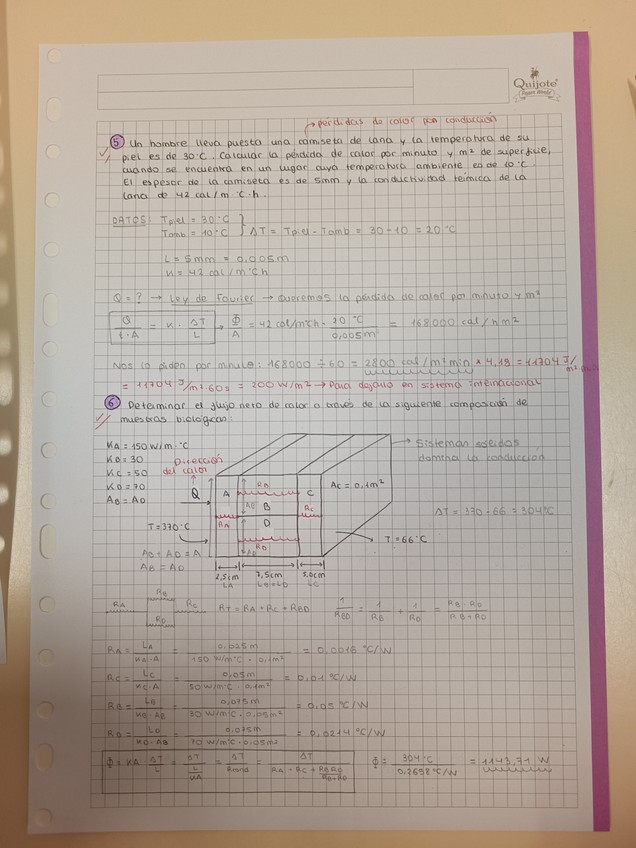 Quijote
→ pérdidas de calor por conducción
5 Un hombre lleva puesta una camiseta de lana y la temperatura de su
piel es de 30°C. Calcular la pérdida de calor por minuto y m² de superficie,
cuando se encuentra en un lugar cuya temperatura ambiente es de 10°C.
El espesor de la camiseta es de 5mm y la conductividad térmica de la
lana de 42 cal/m °C·h.
DATOS: Tpiel = 30°C
Tamb = 10°C } ΔT = Tpiel - Tamb = 30-10 = 20°C
L = 5mm = 0,005m
K = 42 cal/m°Ch
Q = ? → Ley de Fourier → Queremos la pérdida de calor por minuto y m²
Q/t·A = K · ΔT/L ; Φ/A = 42 cal/m°Ch · 20 °C/0,005m = 168000 cal/h m²
Nos lo piden por minuto: 168000 ÷ 60 = 2800 cal/m² min * 4,18 = 11704 J/m²
= 11704 J/m²·60s = 200 W/m² → Para dejarlo en sistema internacional
6 Determinar el flujo neto de calor a través de la siguiente composición de
muestras biológicas:
KA = 150 W/m·°C
KB = 30
KC = 50
KD = 70
AB = AD
Dirección
del calor
Q
A
RB
B
D
RD
C
RA
RC
AC = 0,1m²
→ Sistemas sólidos
domina la conducción
ΔT = 370-66 = 304°C
T = 370°C
T = 66°C
AB = AD
2,5cm 7,5cm 5,0cm
LA LB=LD LC
RA RB RC RD
RT = RA + RC + RBD
1/RBD = 1/RB + 1/RD = RB·RD/RB+RD
RA = LA/KA·A = 0,025m/150 W/m°C · 0,1m² = 0,0016 °C/W
RC = LC/KC·A = 0,05m/50 W/m°C · 0,1m² = 0,01 °C/W
RB = LB/KB·AB = 0,075m/30 W/m°C · 0,05m² = 0,05 °C/W
RD = LD/KD·AB = 0,075m/70 W/m°C · 0,05m² = 0,0214 °C/W
Φ = KA · ΔT/L = ΔT/L/KA = ΔT/Rcond = ΔT/RA + RC + RB·RD/RB+RD
Φ = 304°C/0,2658 °C/W = 1143,71 W